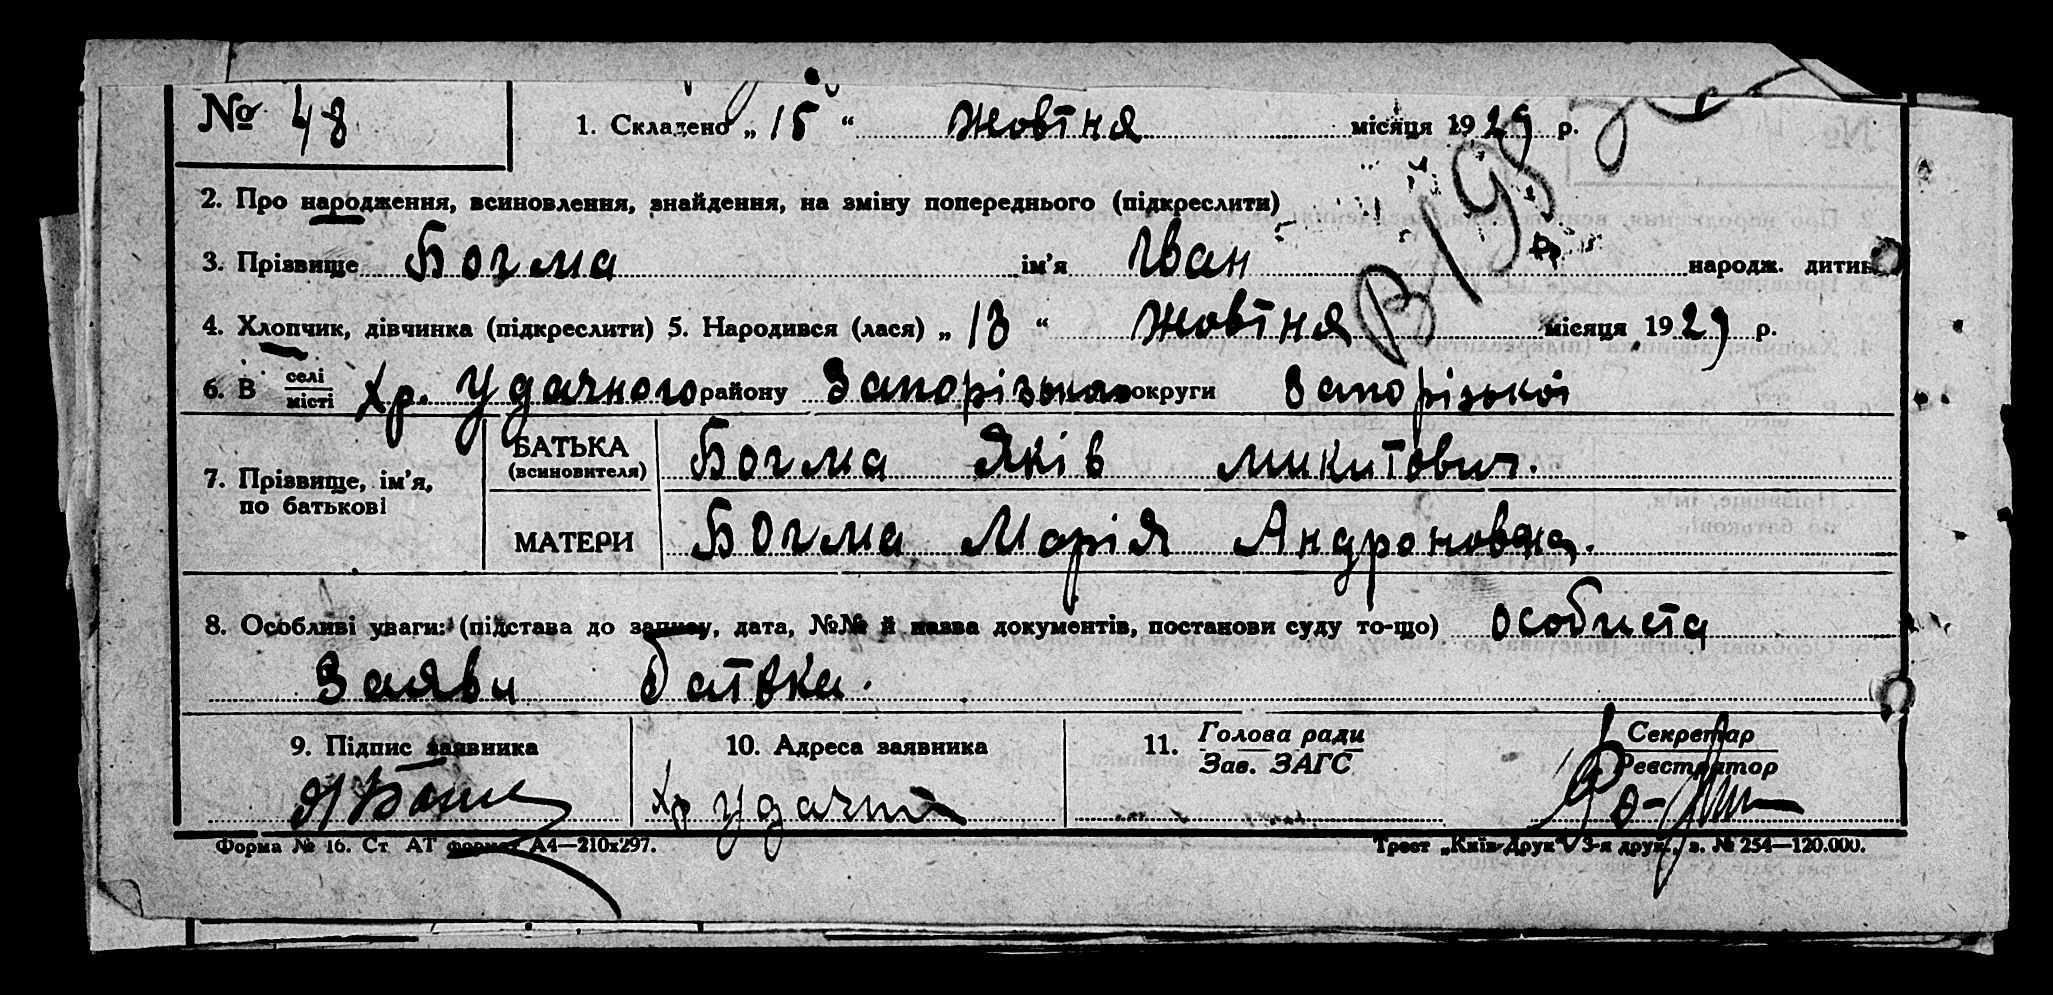 № 48 1. Складено „ 15 “ жовтня місяця 1929 р.
2. Про народження, всиновлення, знайдення, на зміну попереднього (підкреслити)
3. Прізвище Богма ім’я Іван народж. дитин
4. Хлопчик, дівчинка (підкреслити) 5. Народився (лася) „ 13 “ жовтня місяця 1929 р.
6. В селі місті Хр. Удачного району Запорізького округи Запорізької
7. Прізвище, ім’я, по батькові
БАТЬКА (всиновителя) Богма Яків Микитович.
МАТЕРИ Богма Марія Андроновна.
8. Особливі уваги: (підстава до запису, дата, №№ й назва документів, постанови суду то-що) особиста
заява батька.
9. Підпис заявника 10. Адреса заявника 11. Голова ради Секретар
Зав. ЗАГС Реєстратор
Я Богма Хр Удачне
Форма № 16. Ст АТ формат А4—210х297. Трест „Київ-Друк“ 3-я друк., з. № 254—120.000.
В/98